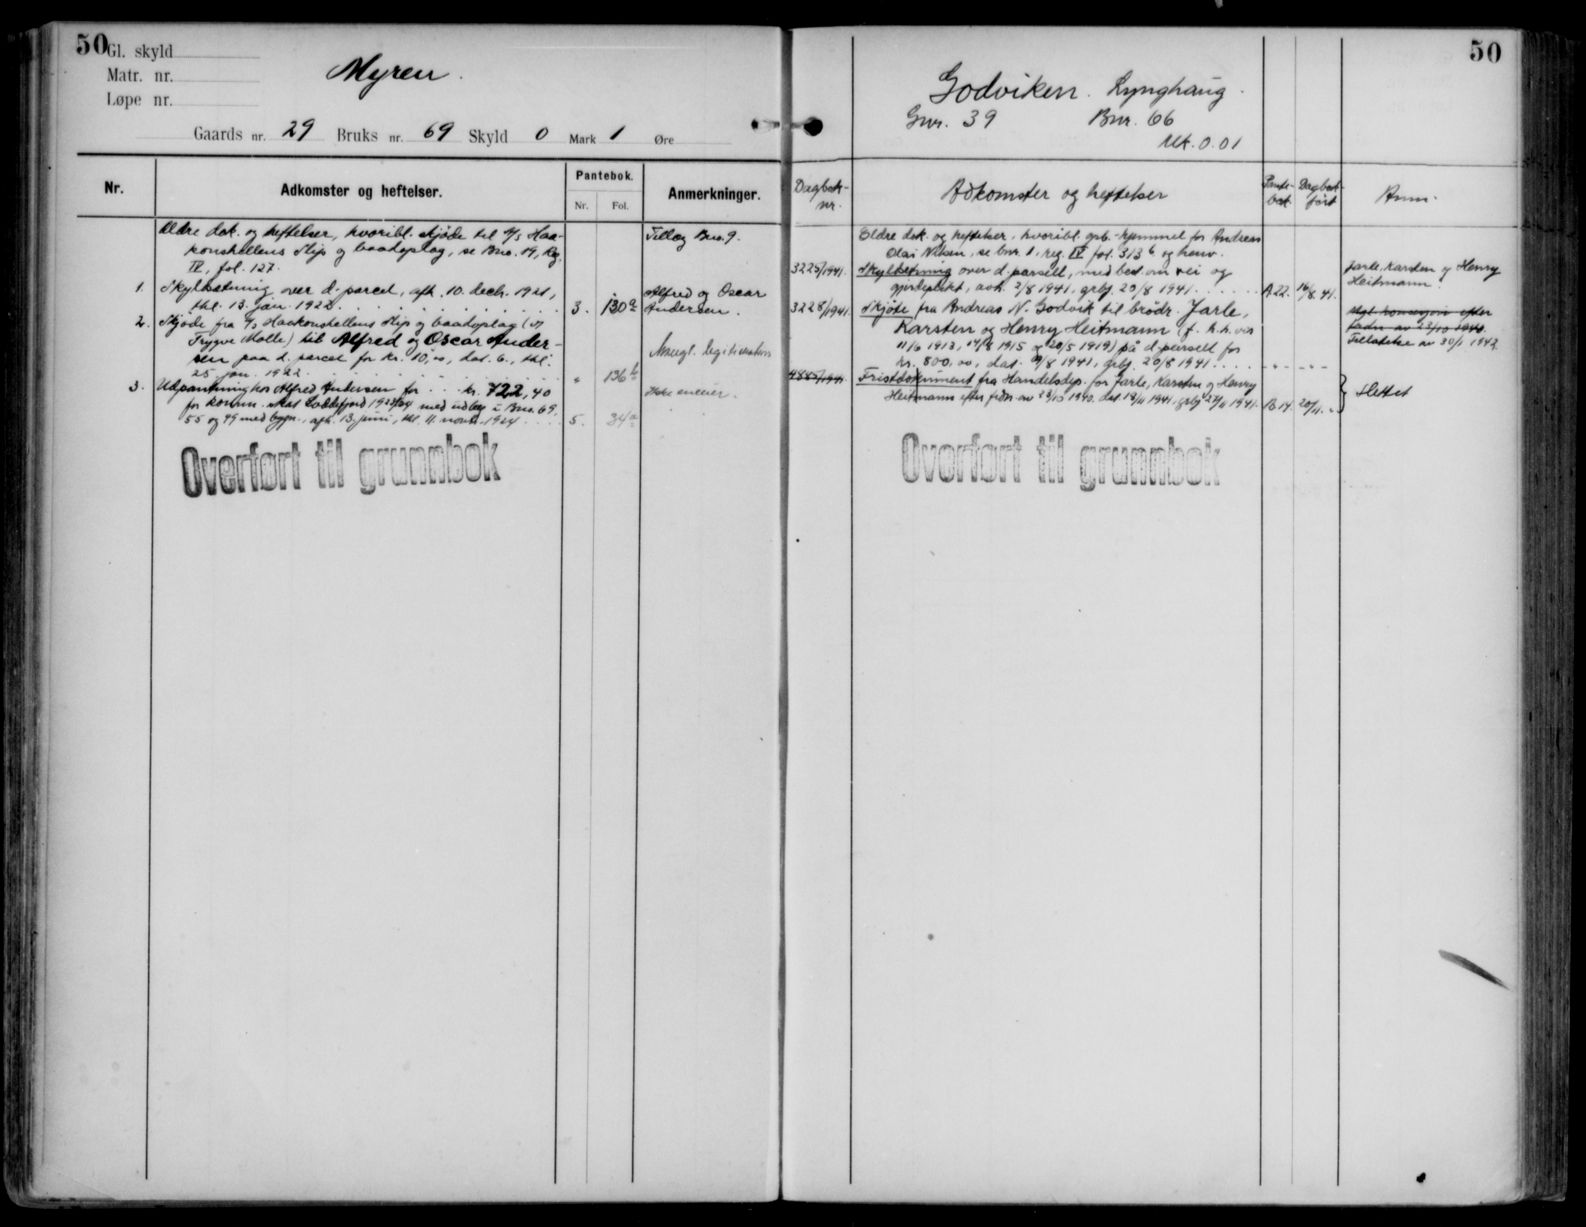 50
Gl. skyld
Matr. nr.
Løpe nr.
Myren.
Gaards nr. 29 Bruks nr. 69 Skyld 0 Mark 1 Øre
Nr.
Adkomster og heftelser.
Pantebok.
Nr. Fol.
Anmerkninger.
Ældre dok. og heftelser, hvoribl. skjøde til A/S Haa-
konshellens Skip og baadoplag, se Bno. 19, Reg.
IV, fol. 127.
Tillæg Bno. 9.
1. Skyldsætning over d. parcel, afh. 10. decb. 1921,
thl. 13. jan. 1922. 3. 130a
Alfred og Oscar
Andersen.
2. Skjøde fra A/S Haakonshellens Skip og baadoplag (v/
Trygve Molle) til Alfred og Oscar Ander-
sen paa d. parcel for kr. 10,00, dat. 6., thl.
25 jan. 1922. " 136b
Mangl. legitimation
3. Udpantning hos Alfred Andersen for kr. 722,40
for komm. skat Laksefjord 1923/24 med udlæg i Bno. 69,
55 og 49 med bygn., afh. 13. juni, thl. 11. novbr. 1924 5. 34a
Ikke eneeier.
Overført til grunnbok
50
Godviken. Lynghaug.
Gnr. 39 Bnr. 66
Mk. 0.01
Dagbok-
nr.
Adkomster og heftelser
Pante-
bok
Dagbok-
ført
Anm.
Eldre dok. og heftelser, hvoribl. opb.-hjemmel for Andreas
Olai Nilsen, se bnr. 1. reg. IV fol. 313b og henv.
3225/1941. Skyldsetning over d. parsell, med best. om vei og
gjerdeplikt, avh. 2/8 1941, grbg. 20/8 1941 A.22. 16/8.41.
Jarle, Karsten og Henry
Heitmann.
3228/1941. Skjøte fra Andreas N. Godvik til brødr. Jarle,
Karsten og Henry Heitmann (f. h.h.vis
11/6 1913, 14/8 1915 og 20/5 1919) på d. parsell for
kr. 800.00, dat. 9/8 1941, grbg. 20/8 1941 - " - - " -
Mgl. konsesjon efter
fordn av 23/10 1940.
Tillatelse av 30/1 1942.
4885/1941. Fristdokument fra Handelsdep. for Jarle, Karsten og Henry
Heitmann efter fordn av 23/10 1940. dat 18/11 1941. grbg 27/11 1941. B.14. 20/11. "
Slettet
Overført til grunnbok